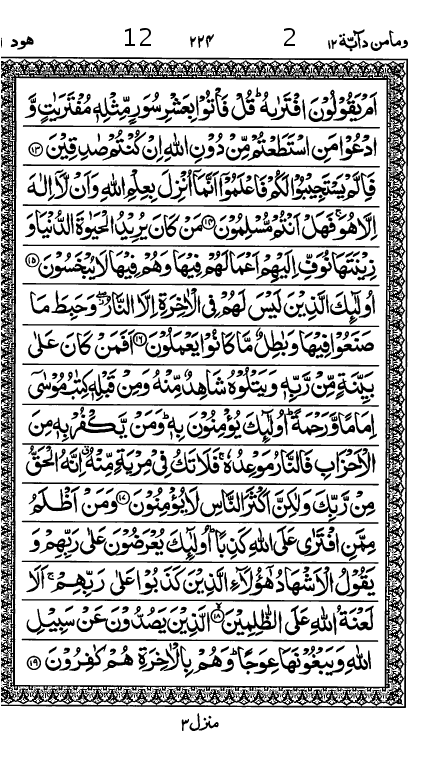 ومامن دآبۃ ۱۲ 2 ۲۲۴ 12 هود ۱
اَمْ يَقُوْلُوْنَ افْتَرٰىهُ ؕ قُلْ فَاْتُوْا بِعَشْرِ سُوَرٍ مِّثْلِهٖ مُفْتَرَيٰتٍ وَّ
ادْعُوْا مَنِ اسْتَطَعْتُمْ مِّنْ دُوْنِ اللّٰهِ اِنْ كُنْتُمْ صٰدِقِيْنَ ۝۱۳
فَاِلَّمْ يَسْتَجِيْبُوْا لَكُمْ فَاعْلَمُوْۤا اَنَّمَاۤ اُنْزِلَ بِعِلْمِ اللّٰهِ وَاَنْ لَّاۤ اِلٰهَ
اِلَّا هُوَ ۚ فَهَلْ اَنْتُمْ مُّسْلِمُوْنَ ۝۱۴ مَنْ كَانَ يُرِيْدُ الْحَيٰوةَ الدُّنْيَا وَ
زِيْنَتَهَا نُوَفِّ اِلَيْهِمْ اَعْمَالَهُمْ فِيْهَا وَهُمْ فِيْهَا لَا يُبْخَسُوْنَ ۝۱۵
اُولٰٓئِكَ الَّذِيْنَ لَيْسَ لَهُمْ فِي الْاٰخِرَةِ اِلَّا النَّارُ ۖ وَحَبِطَ مَا
صَنَعُوْا فِيْهَا وَبٰطِلٌ مَّا كَانُوْا يَعْمَلُوْنَ ۝۱۶ اَفَمَنْ كَانَ عَلٰى
بَيِّنَةٍ مِّنْ رَّبِّهٖ وَيَتْلُوْهُ شَاهِدٌ مِّنْهُ وَمِنْ قَبْلِهٖ كِتٰبُ مُوْسٰۤى
اِمَامًا وَّرَحْمَةً ؕ اُولٰٓئِكَ يُؤْمِنُوْنَ بِهٖ ؕ وَمَنْ يَّكْفُرْ بِهٖ مِنَ
الْاَحْزَابِ فَالنَّارُ مَوْعِدُهٗ ۚ فَلَا تَكُ فِيْ مِرْيَةٍ مِّنْهُ ۗ اِنَّهُ الْحَقُّ
مِنْ رَّبِّكَ وَلٰكِنَّ اَكْثَرَ النَّاسِ لَا يُؤْمِنُوْنَ ۝۱۷ وَمَنْ اَظْلَمُ
مِمَّنِ افْتَرٰى عَلَى اللّٰهِ كَذِبًا ؕ اُولٰٓئِكَ يُعْرَضُوْنَ عَلٰى رَبِّهِمْ وَ
يَقُوْلُ الْاَشْهَادُ هٰۤؤُلَآءِ الَّذِيْنَ كَذَبُوْا عَلٰى رَبِّهِمْ ۚ اَلَا
لَعْنَةُ اللّٰهِ عَلَى الظّٰلِمِيْنَ ۝۱۸ الَّذِيْنَ يَصُدُّوْنَ عَنْ سَبِيْلِ
اللّٰهِ وَيَبْغُوْنَهَا عِوَجًا ؕ وَهُمْ بِالْاٰخِرَةِ هُمْ كٰفِرُوْنَ ۝۱۹
منزل ۳